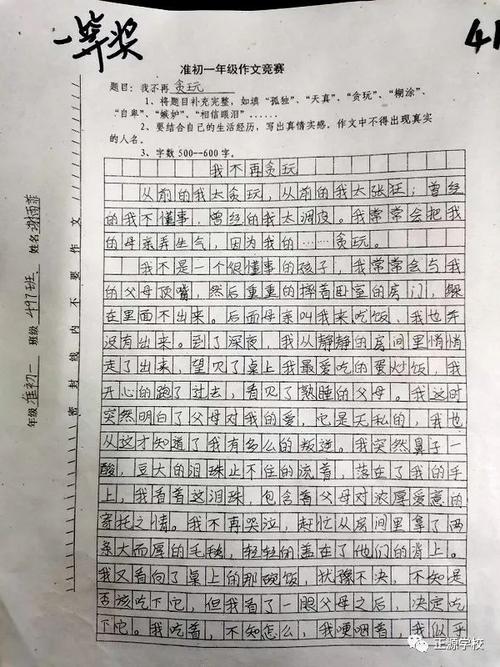 一等奖
41
准初一年级作文竞赛
题目：我不再贪玩
1、将题目补充完整，如填“孤独”、“天真”、“贪玩”、“糊涂”、
“自卑”、“嫉妒”、“相信眼泪”……
2、要结合自己的生活经历，写出真情实感，作文中不得出现真实
的人名。
3、字数500--600字。
我不再贪玩
从前的我太贪玩，从前的我太张狂；曾经
的我不懂事，曾经的我太调皮。我常常会把我
的母亲弄生气，因为我的……贪玩。
我不是一个很懂事的孩子，我常常会与我
的父母顶嘴，然后重重的摔着卧室的房门，躲
在里面不出来。后面母亲叫我来吃饭，我也并
没有出来。到了深夜，我从静静的房间里悄悄
走了出来，望见了桌上我最爱吃的蛋炒饭，我
开心的跑了过去，看见了熟睡的父母。我这时
突然明白了父母对我的爱，它是无私的，我也
从这才知道了我有多么的叛逆。我突然鼻子一
酸，豆大的泪珠止不住的流着，落在了我的手
上，我看着这泪珠，包含着父母对浓厚爱意的
寄托之情。我不再哭泣，赶忙从房间里拿了两
条大而厚的毛毯，轻轻的盖在了他们的背上。
我又看向了桌上的那碗饭，犹豫不决，不知是
否该吃下它，但我看了一眼父母之后，决定吃
下它。我吃着，不知怎么，我哽咽着，我似乎
年级 准初一 班级 497班 姓名
密封线内不要作文
正源学校